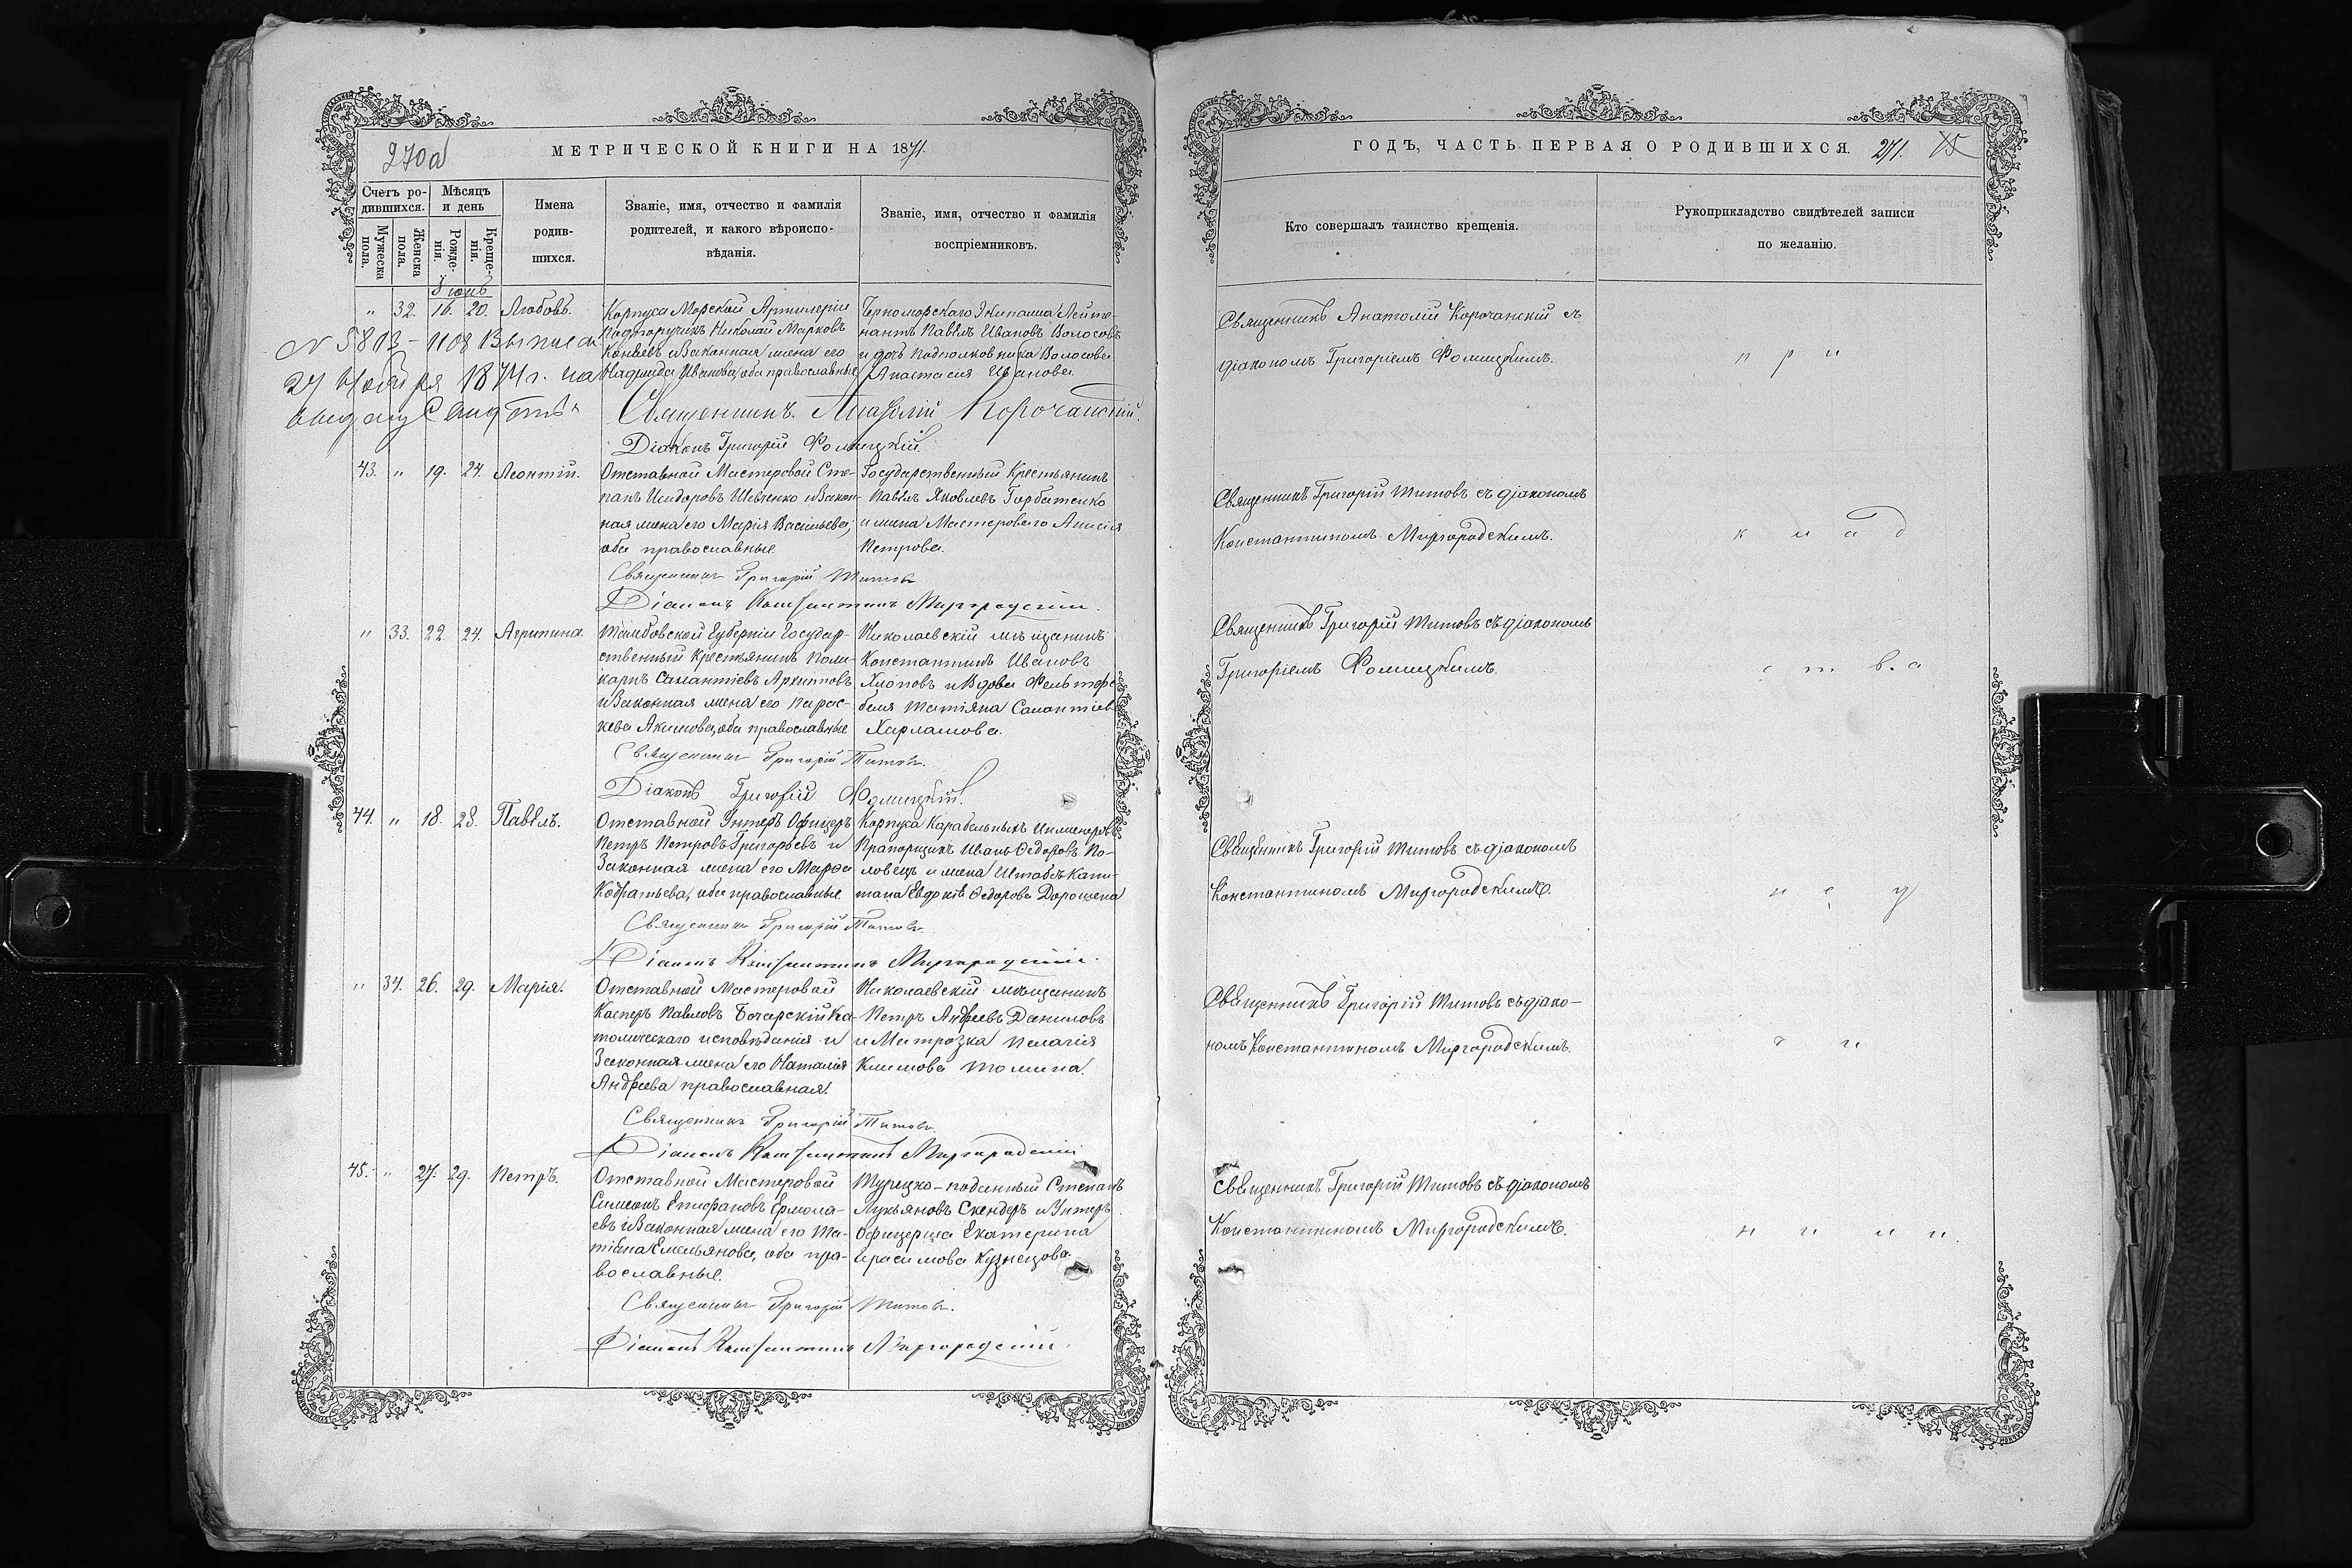 270а
МЕТРИЧЕСКОЙ КНИГИ НА 1871.
Счетъ ро-
дившихся.
Мѣсяцъ
и день
Мужеска
пола.
Женска
пола.
Рожде-
нія.
Креще-
нія.
Имена
родив-
шихся.
Званіе, имя, отчество и фамилія
родителей, и какого вѣроиспо-
вѣданія.
Званіе, имя, отчество и фамилія
воспріемниковъ.
" 32. 16. 20. Любовь.
Корпуса Морской Артилеріи
Подпоручикъ Николай Марковъ
и Законная жена его
Надежда Иванова, оба православные
Черноморскаго Экипажа Лейте-
нантъ Павелъ Ивановъ Волосовъ
и дочь Подполковника Волосова
Анастасія Иванова
N 5813 - 1108 Выписа
27 Ноября 1874 г. на
Священникъ Анатолій Корочанскій.
Діаконъ Григорій Фомицкій.
43. " 19. 24. Леонтій.
Отставной Мастеровой Сте-
панъ Исидоровъ Шевченко и Закон-
ная жена его Марія Васильева;
оба православные
Государственный Крестьянинъ
Павелъ Яковлевъ Горбатенко
и жена Мастероваго Анисія
Петрова.
Священникъ Григорій Титовъ
Діаконъ Константинъ Миргородскій.
" 33. 22. 24. Агрипина.
Тамбовской Губерніи Государ-
ственный Крестьянинъ Поли-
карпъ Савантіевъ Архиповъ
и Законная жена его Парас-
кева Акимова, оба православные
Николаевскій мѣщанинъ
Константинъ Ивановъ
Хлоповъ и Вдова Фельтфе-
беля Татіяна Савантіев
Харламова.
Священникъ Григорій Титовъ.
Діаконъ Григорій Фомицкій.
44. " 18. 28. Павелъ.
Отставной Унтеръ Офицеръ
Петръ Петровъ Григорьевъ и
Законная жена его Марѳа
Кодратьева, оба православные
Корпуса Карабельныхъ Инженеровъ
Прапорщикъ Иванъ Ѳедоровъ По-
ловецъ и жена Штабсъ Капи-
тана Евдокія Ѳедорова Дорошева
Священникъ Григорій Титовъ.
Діаконъ Константинъ Миргородскій.
" 34. 26. 29. Марія.
Отставной Мастеровой
Касперъ Павловъ Бочарскій Ка-
толическаго исповѣданія и
Законная жена его Наталія
Андреева православная.
Николаевскій мѣщанинъ
Петръ Андреевъ Даниловъ
и Матрозка Пелагія
Климова Томина.
Священникъ Григорій Титовъ.
Діаконъ Константинъ Миргородскій
45. " 27. 29. Петръ.
Отставной Мастеровой
Симеонъ Епифановъ Ермола-
евъ и Законная жена его Та-
тіана Емельянова, оба пра-
вославные.
Турецко-поданный Степанъ
Лукьяновъ Скендеръ и Унтеръ
Офицерша Екатерина
Ирасимова Кузнецова
Священникъ Григорій Титовъ.
Діаконъ Константинъ Миргородскій.
ГОДЪ, ЧАСТЬ ПЕРВАЯ О РОДИВШИХСЯ. 271.
Кто совершалъ таинство крещенія.
Рукоприкладство свидѣтелей записи
по желанію.
Священникъ Анатолій Корочанскій съ
діакономъ Григоріемъ Фомицкимъ.
п р и
Священникъ Григорій Титовъ съ діакономъ
Константиномъ Миргородскимъ.
к л а д
Священникъ Григорій Титовъ съ діакономъ
Григоріемъ Фомицкимъ.
с т в а
Священникъ Григорій Титовъ съ діакономъ
Константиномъ Миргородскимъ.
н е у
Священникъ Григорій Титовъ съ діако-
номъ Константиномъ Миргородскимъ.
Священникъ Григорій Титовъ съ діакономъ
Константиномъ Миргородскимъ.